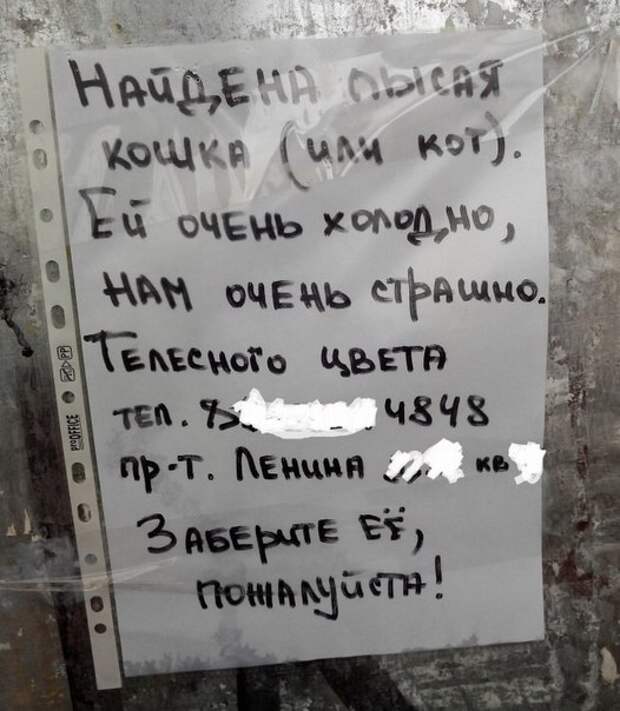 НАЙДЕНА ЛЫСАЯ
КОШКА (ИЛИ КОТ).
ЕЙ ОЧЕНЬ ХОЛОДНО,
НАМ ОЧЕНЬ СТРАШНО.
ТЕЛЕСНОГО ЦВЕТА
ТЕЛ. 4848
ПР-Т. ЛЕНИНА КВ
ЗАБЕРИТЕ ЕЁ,
ПОЖАЛУЙСТА!
PROOFFICE
PP